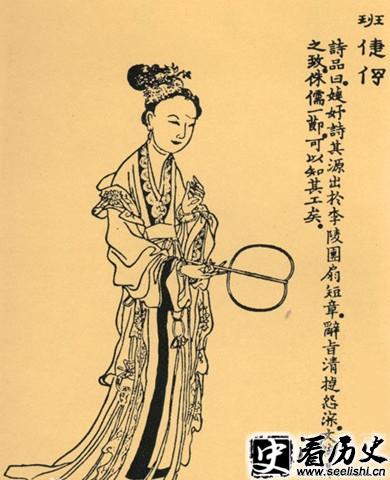 班倢伃
詩品曰。婕妤詩其源出於李陵團扇短章。辭旨清捷。怨深文
之致。侏儒一節。可以知其工矣。
史看历史
www.seelishi.cn